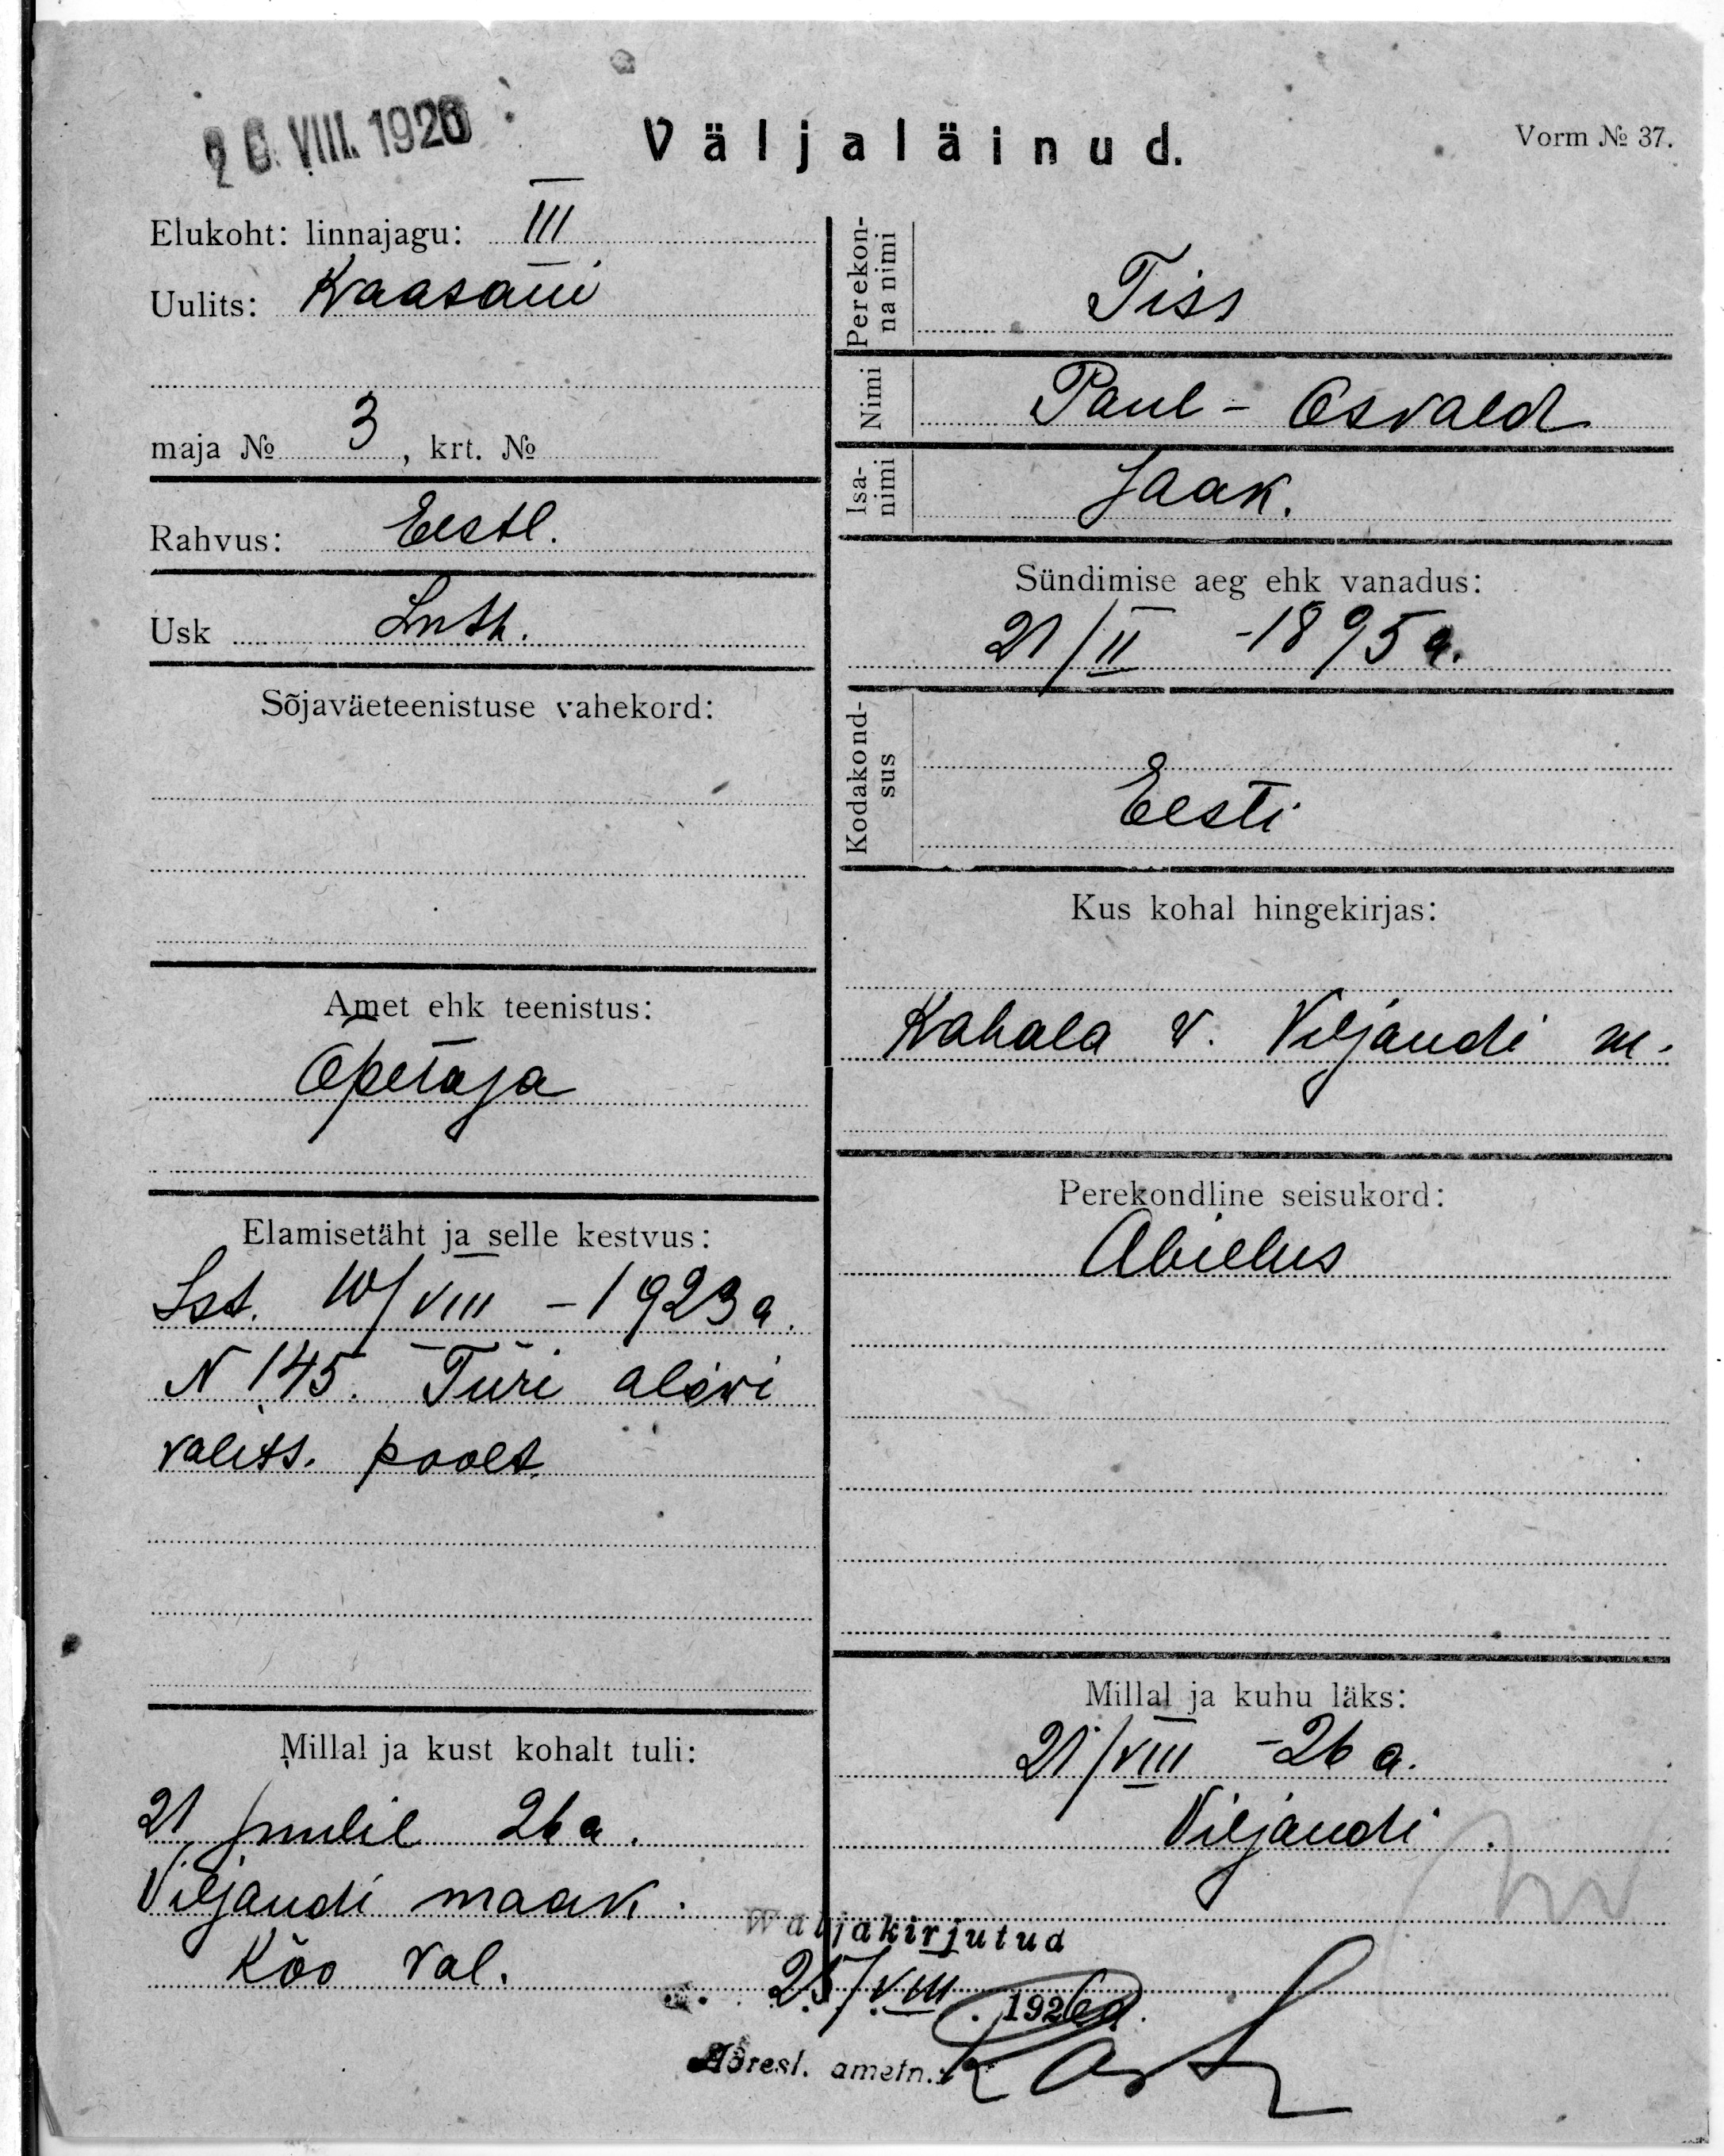 26. VIII. 1926
Väljaläinud.
Vorm № 37.
Elukoht: linnajagu: III
Uulits: Kaasani
maja № 3, krt. №
Rahvus: Eestl.
Usk Luth.
Sõjaväeteenistuse vahekord:
Amet ehk teenistus:
Õpetaja
Elamisetäht ja selle kestvus:
Ist. 10/VIII -1923 a.
N 145. Türi alevi
valits. poolt.
Millal ja kust kohalt tuli:
21 juulil 26 a.
Viljandi maak.
Kõo val.
Perekonna nimi
Tiss
Nimi
Paul - Osvald
Isanimi
Jaak.
Sündimise aeg ehk vanadus:
21/II -1895 a.
Kodakondsus
Eesti
Kus kohal hingekirjas:
Kabala v. Viljandi m.
Perekondline seisukord:
Abielus
Millal ja kuhu läks:
21/VIII -26 a.
Viljandi.
Wäljakirjutud
25/VIII. 1926 a.
Adresl. ametn.: